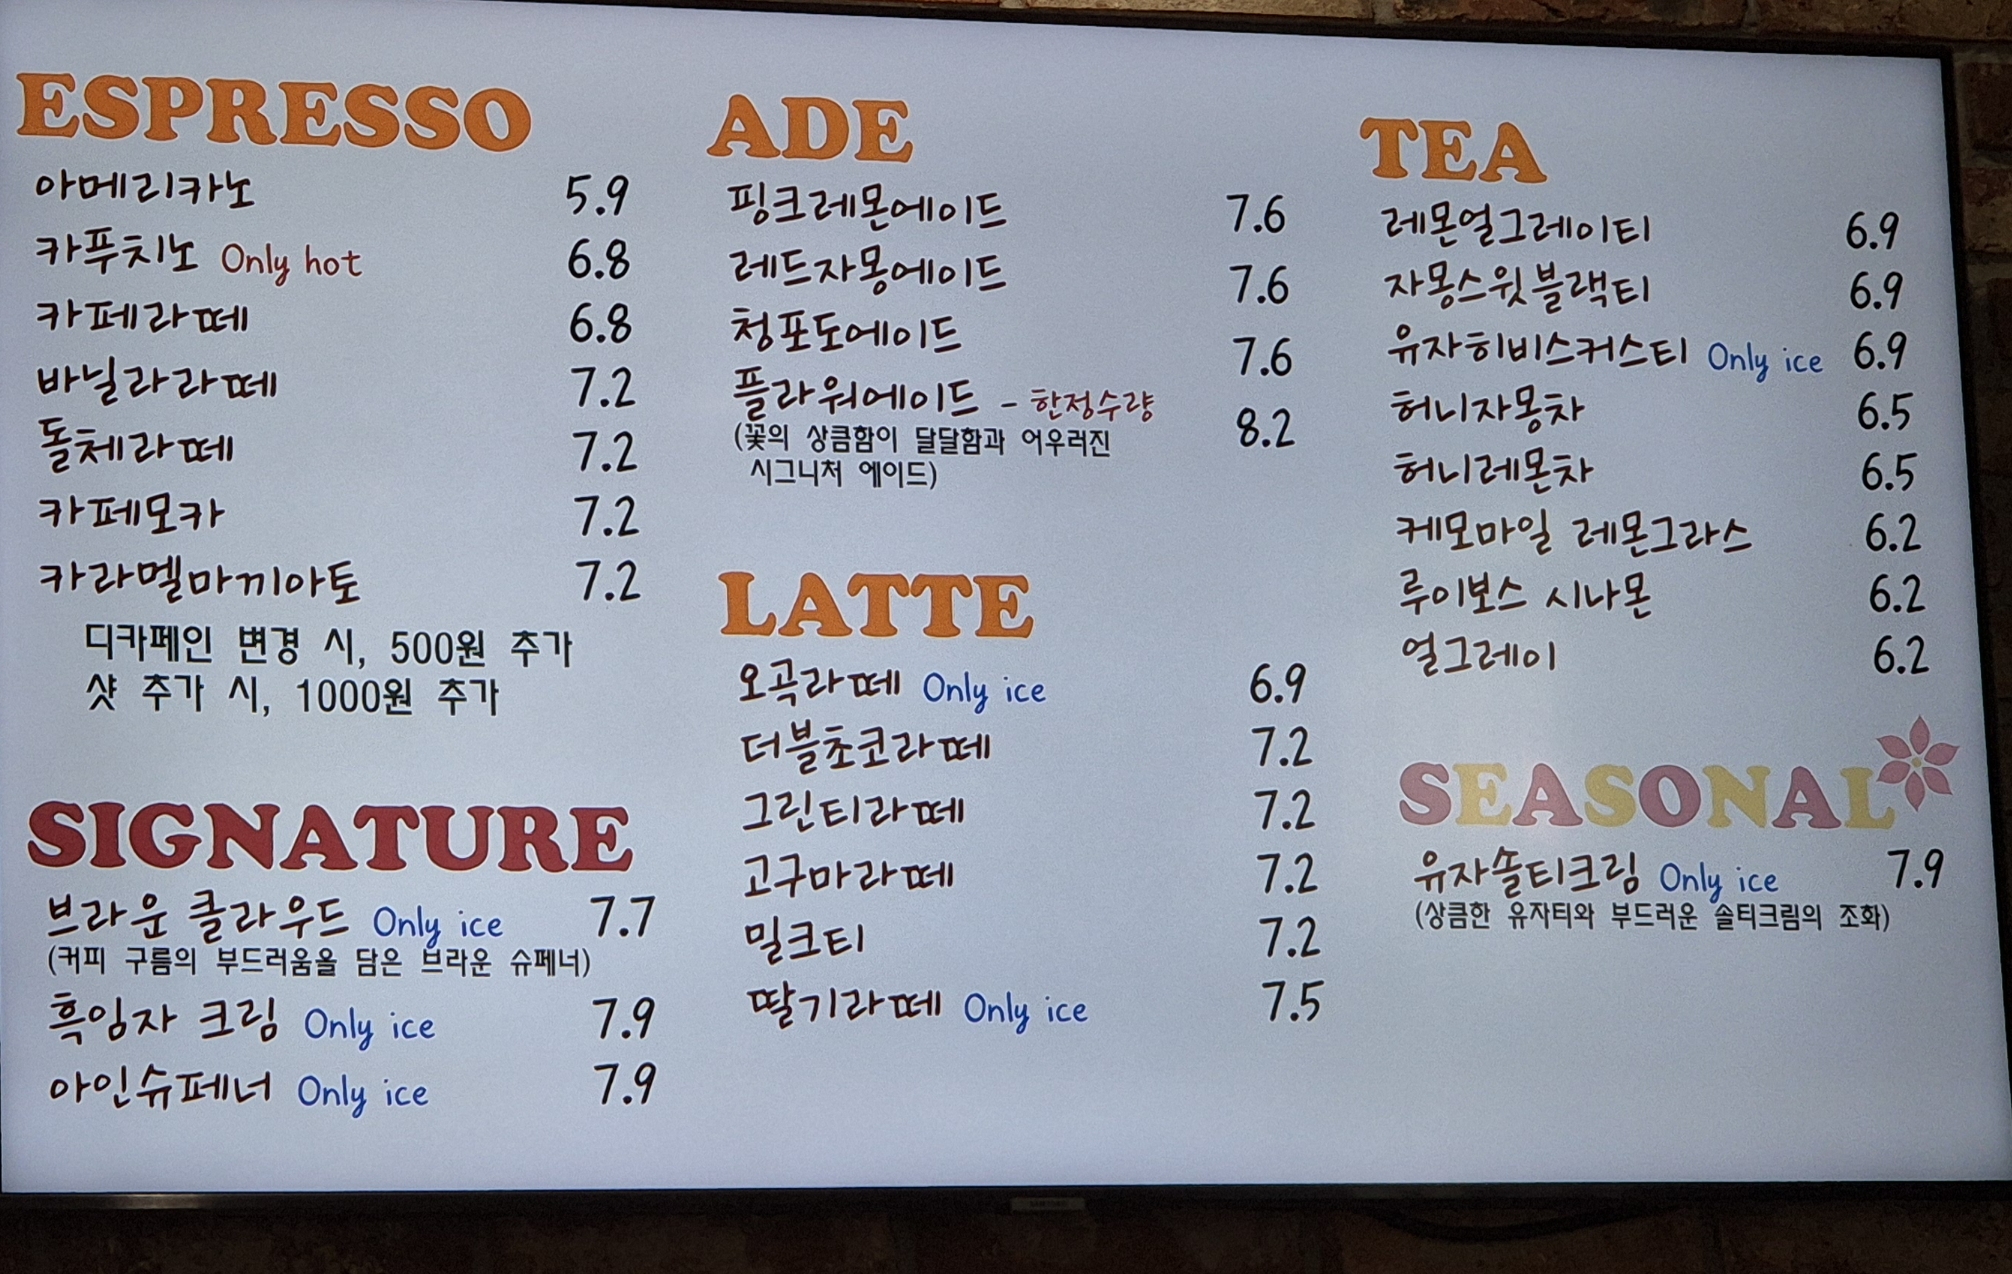 ESPRESSO
아메리카노 5.9
카푸치노 Only hot 6.8
카페라떼 6.8
바닐라라떼 7.2
돌체라떼 7.2
카페모카 7.2
카라멜마끼아토 7.2
디카페인 변경 시, 500원 추가
샷 추가 시, 1000원 추가
SIGNATURE
브라운 클라우드 Only ice 7.7
(커피 구름의 부드러움을 담은 브라운 슈페너)
흑임자 크림 Only ice 7.9
아인슈페너 Only ice 7.9
ADE
핑크레몬에이드 7.6
레드자몽에이드 7.6
청포도에이드 7.6
플라워에이드 - 한정수량 8.2
(꽃의 상큼함이 달달함과 어우러진
시그니처 에이드)
LATTE
오곡라떼 Only ice 6.9
더블초코라떼 7.2
그린티라떼 7.2
고구마라떼 7.2
밀크티 7.2
딸기라떼 Only ice 7.5
TEA
레몬얼그레이티 6.9
자몽스윗블랙티 6.9
유자히비스커스티 Only ice 6.9
허니자몽차 6.5
허니레몬차 6.5
케모마일 레몬그라스 6.2
루이보스 시나몬 6.2
얼그레이 6.2
SEASONAL
유자솔티크림 Only ice 7.9
(상큼한 유자티와 부드러운 솔티크림의 조화)